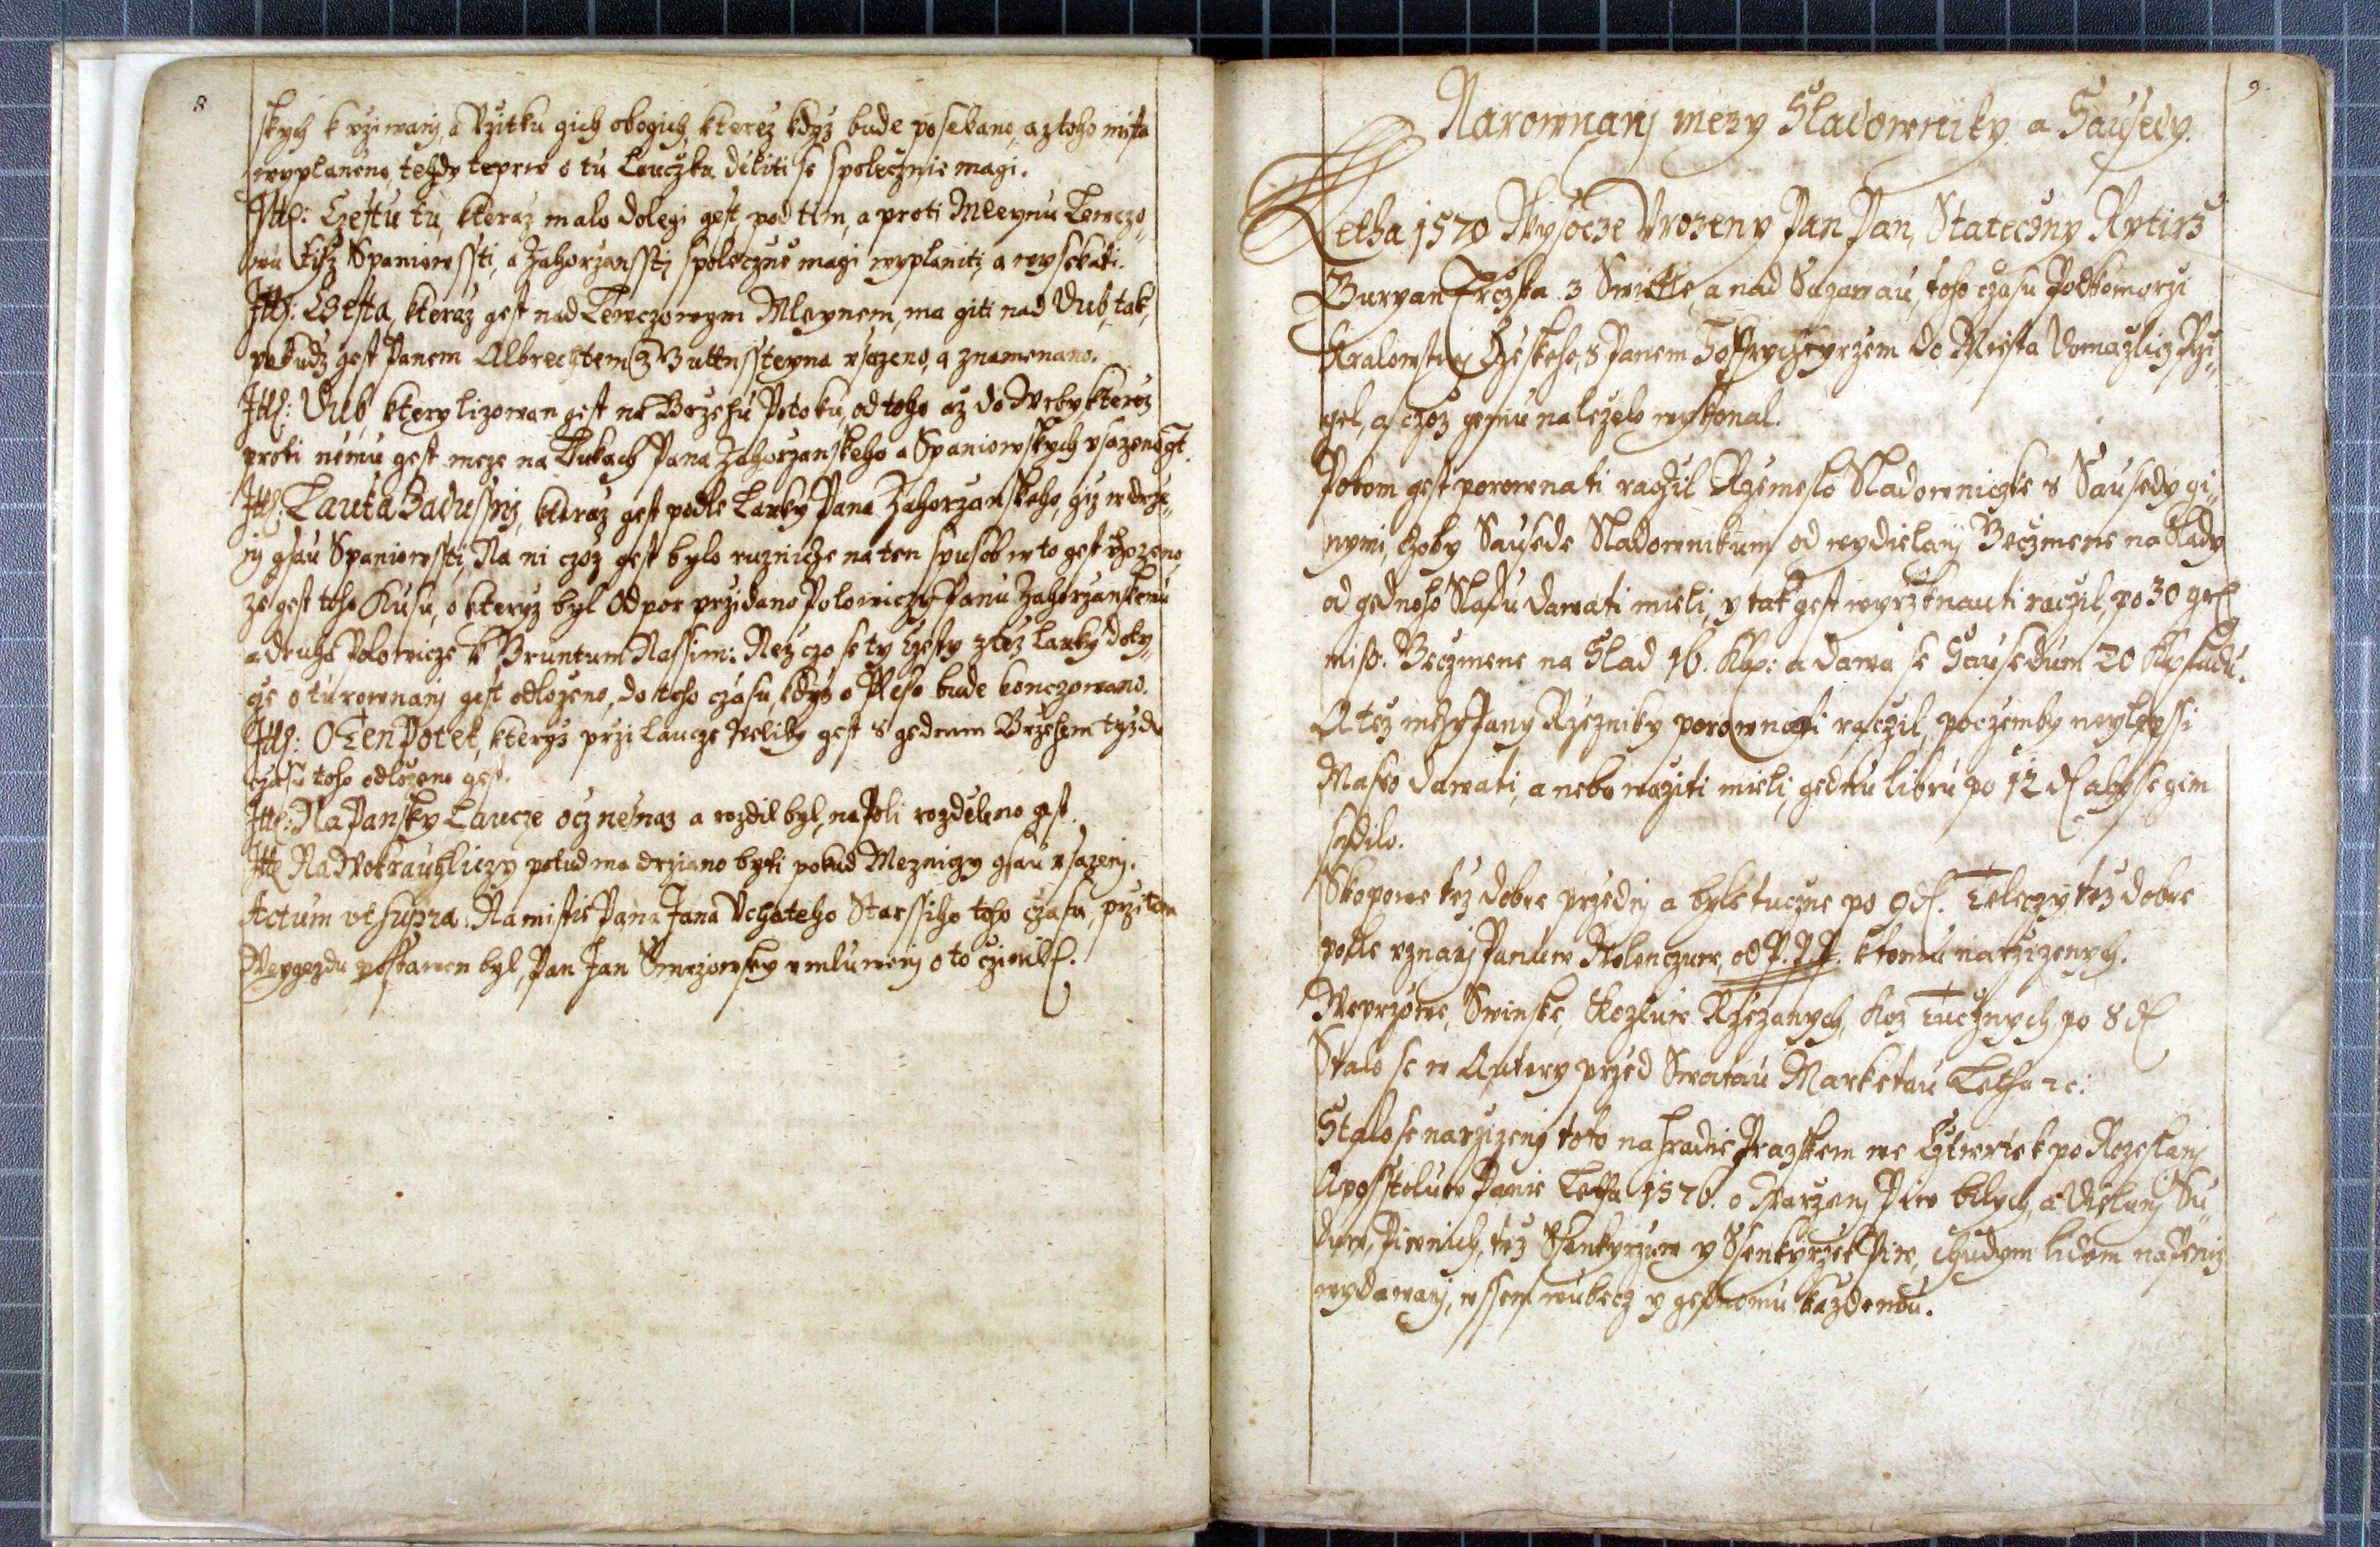 8
skych k vziwanj, a Vzitku gich obogich, kterez kdyz bude posekano, a z toho mista
wyplaneno, tehdy teprw o tu Lauczku deliti se spolecznie magi.
Itt: Czestu tu, kteraz malo dolegi gest, pod tim, a proti Mleynu Lewczo„
wu tehz Spaniowssti, a Zahorzanssti spoleczne magi wyplaniti, a wysekati.
Itt: Czesta, kteraz gest nad Lewczowym Mleynem, ma giti nad Dub, tak,
pokudz gest Panem Albrechtem z Guttnssteyna vsazeno, a znamenano.
Itt: Dub, ktery lizowan gest na Brzehu Potoku, od toho az do Wrby kteraz
proti nemu gest meze na Lukach Pana Zahorzanskeho a Spaniowskych vsazena gt.
Itt: Lauka Badussnj, kteraz gest podle Lauky Pana Zahorzanskeho, giz w drze„
nj gsau Spaniowsti, Na ni czoz gest bylo ruznicze na ten spusob w to gest
ze gest toho Kusu, o kteryz byl Odpor przidano Polowiczy Panu Zahorzanskemu
a druha Polowicze k Gruntum Nassim: Nez czo se ty Czesty z tez Lauky doty„
cze o tu rownanj gest odlozeno, do toho czasu, kdyz o Pleso bude konczowano.
Itt: O Ten Potok, kteryz przi Laucze Weliky gest s gednim Brzehem tyz do
czasu toho odlozeno gest.
Itt: Na Pansky Laucze ocz nesnaz a rozdil byl, na Poli rozdeleno gest.
Itt Na Wokrauhliczy potud ma drzano byti pokud Meznicy gsau vsazeni.
Actum vt supra. Na mistie Pana Jana Vchateho Starssiho toho czasu, przi tom
Weygezdu postawen byl, Pan Jan Smrzowsky vmluwenj o to
9.
Narownanj mezy Sladownity a Sausedy.
Letha 1570 Wysocze Vrozeny Pan Pan, Stateczny Rytirz
Buryan Trczka z Switle, a nad Sazawau, toho czasu Podkomorzi
Kralowstwj Czeskeho, s Panem Hoffrychtyrzem do Miesta Domazlicz Przi„
gel, a czoz gemu nalezelo wykonal.
Potom gest porownati raczil Rzemeslo Sladowniczke s Sausedy gi„
nymi, czoby Sausede Sladownikum od wydielanj Geczmene na Slady
od gednoho Sladu dawati mieli, y tak gest wyrzknauti raczil, po 30 gr
miss. Geczmene na Slad 16. Kbp: a dawa se Sausedum 20
A tez mezy Pany Rzezniky porownati raczil, poczemby neylepssi
Maso dawati, a nebo waziti mieli, gednu libru po 12 d aby se gim
sadilo.
Skopowe tez dobre przednj a byle tuczne po 9 d. Teleczy tez dobre
podle vznanj Panuw od P. P. P. k tomu narzizenych.
Weprzowe, Swinske, Kozluw Rzezanych, Koz Tucznych po 8 d
Stalo se w Autery przed Swatau Marketau Letha 2c:
Stalo se narzizenj toto na hradie Prazskem we Cztwrtek po Rozeslanj
Aposstoluw Panie Letha 1576. o Warzenj Piw bilych, a Dielanj Su„
duw, Piwnich, tez Ssenkyrzuw y Ssenkyrzek Piw, chudym lidem na Peniz
wydawanj, wssem wubecz y gednomu kazdemu.